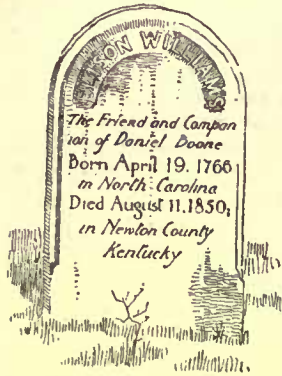 ELISON WILLIAMS
The Friend and Compan
ion of Daniel Boone
Born April 19. 1766
in North Carolina
Died August 11. 1850,
in Newton County
Kentucky